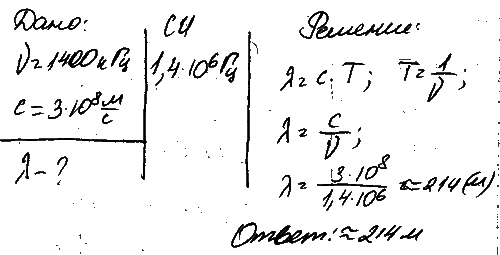 Дано:
ν=1400кГц
c=3·10⁸ м/с
λ-?
СИ
1,4·10⁶Гц
Решение:
λ=c·T; T=1/ν;
λ=c/ν;
λ=3·10⁸/1,4·10⁶≈214(м)
Ответ:≈214м